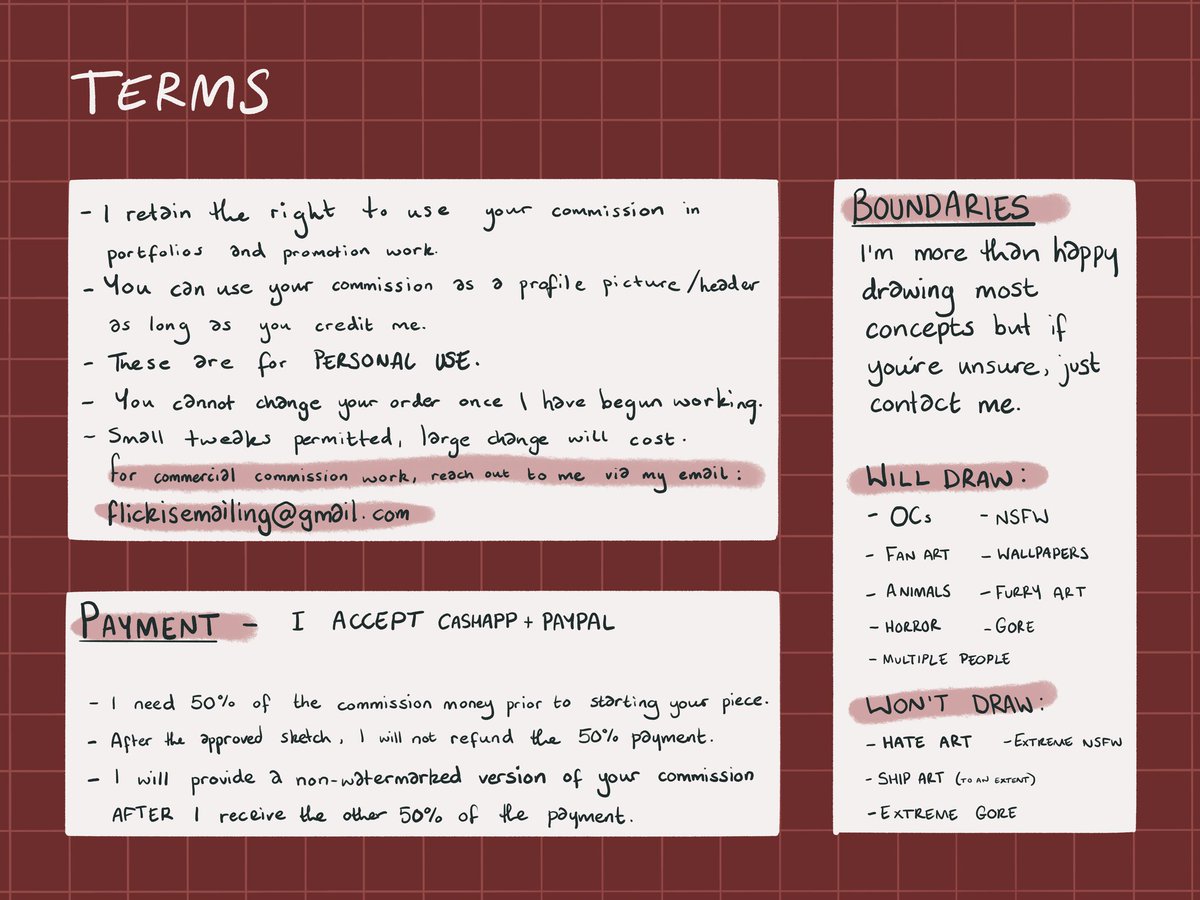 TERMS
- I retain the right to use your commission in
portfolios and promotion work.
- You can use your commission as a profile picture/header
as long as you credit me.
- These are for PERSONAL USE.
- You cannot change your order once I have begun working.
- Small tweaks permitted, large change will cost.
for commercial commission work, reach out to me via my email:
flickisemailing@gmail.com
PAYMENT - I ACCEPT CASHAPP + PAYPAL
- I need 50% of the commission money prior to starting your piece.
- After the approved sketch, I will not refund the 50% payment.
- I will provide a non-watermarked version of your commission
AFTER I receive the other 50% of the payment.
BOUNDARIES
I'm more than happy
drawing most
concepts but if
you're unsure, just
contact me.
WILL DRAW:
- OCs - NSFW
- FAN ART - WALLPAPERS
- ANIMALS - FURRY ART
- HORROR - GORE
- MULTIPLE PEOPLE
WON'T DRAW:
- HATE ART - EXTREME NSFW
- SHIP ART (TO AN EXTENT)
- EXTREME GORE